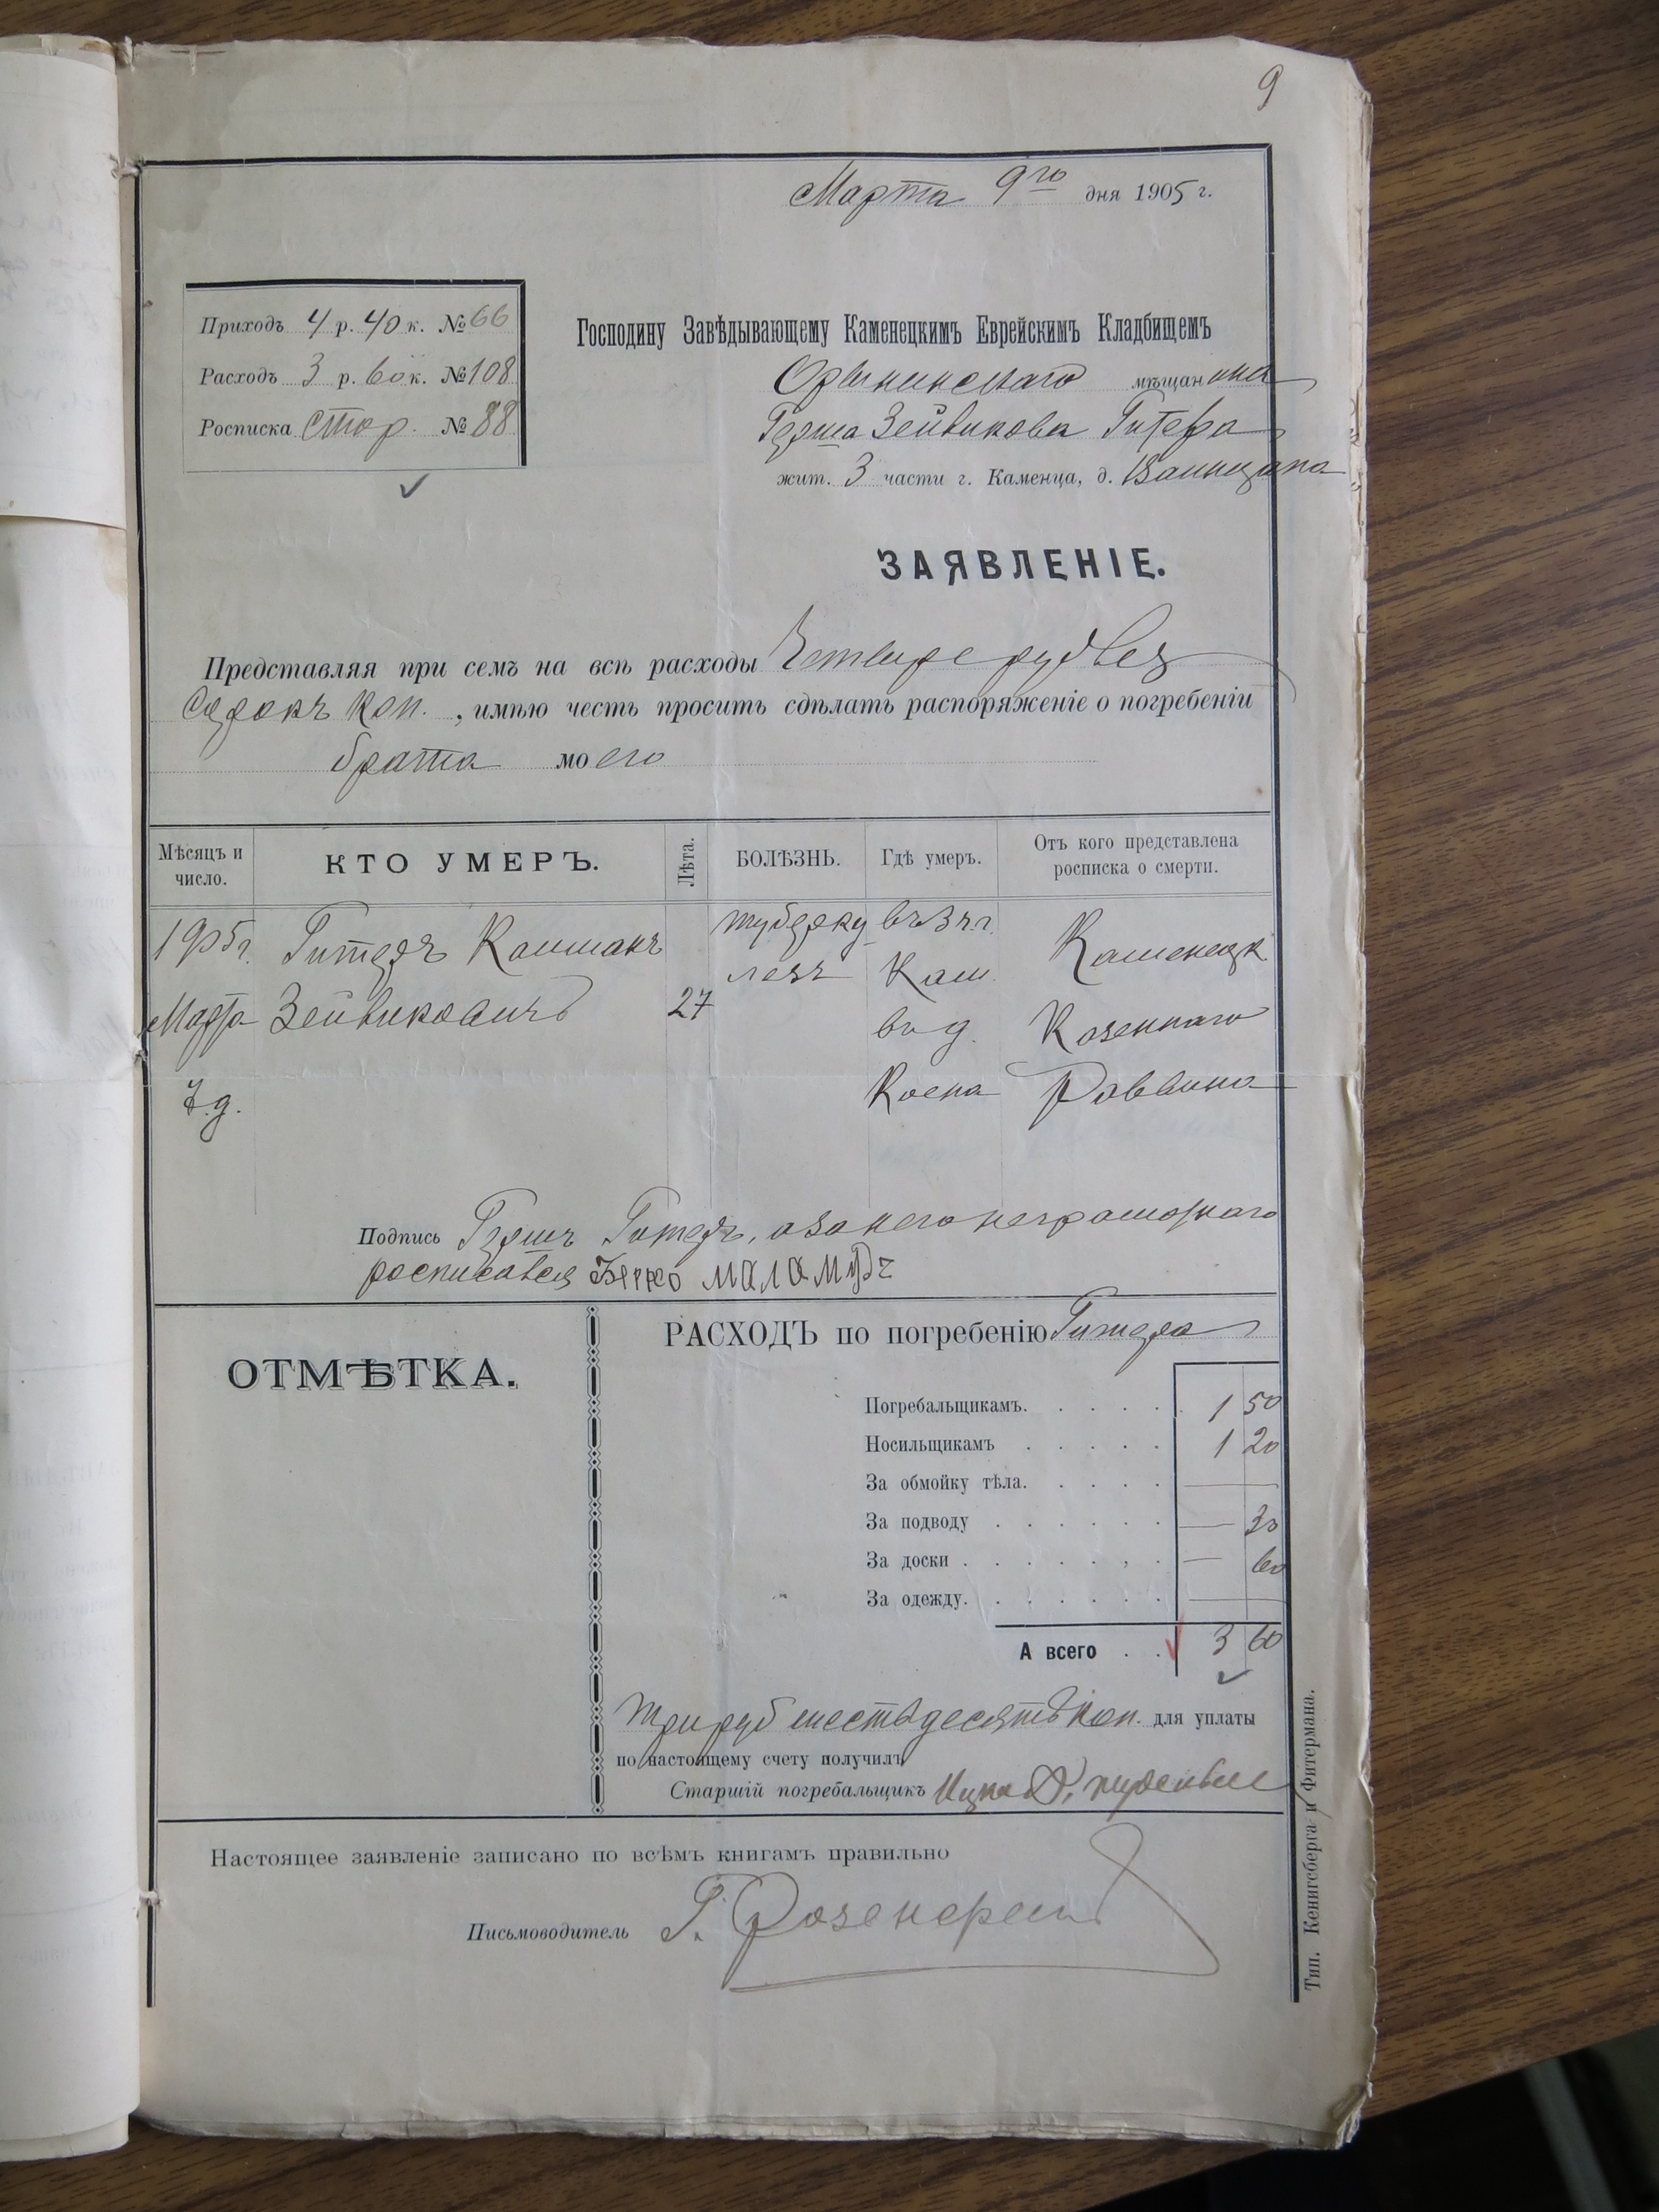 9
Марта 9го дня 1905 г.
Приходъ 4 р. 40 к. № 66
Расходъ 3 р. 60 к. № 108
Росписка стор. № 88
Господину Завѣдывающему Каменецкимъ Еврейскимъ Кладбищемъ
Орынинскаго мѣщанина
Герша Зейвикова Гитера
жит. 3 части г. Каменца, д. Вайнцапа
ЗАЯВЛЕНІЕ.
Представляя при семъ на всѣ расходы Четыре рубля
сорокъ коп. , имѣю честь просить сдѣлать распоряженіе о погребеніи
брата моего
Мѣсяцъ и число.
КТО УМЕРЪ.
Лѣта.
БОЛѢЗНЬ.
Гдѣ умеръ.
Отъ кого представлена росписка о смерти.
1905г. Гитеръ туберку въ 3 ч. г. Каменецк.
лезъ Кам.
Марта Зейвиковичъ 27 въ д. Козеннаго
7 д. Коена Раввина
Подпись Гершъ Гитеръ, а за него неграмотнаго
росписался Берко маламудъ
ОТМѢТКА.
РАСХОДЪ по погребенію Гитера
Погребальщикамъ. 1 50
Носильщикамъ 1 20
За обмойку тѣла. —
За подводу — 30
За доски — 60
За одежду. —
А всего 3 60
Три руб шестьдесятъ коп. для уплаты
по настоящему счету получилъ
Старшій погребальщикъ Ицко
Настоящее заявленіе записано по всѣмъ книгамъ правильно
Письмоводитель Г.
Тип. Кенигсберга и Фитермана.